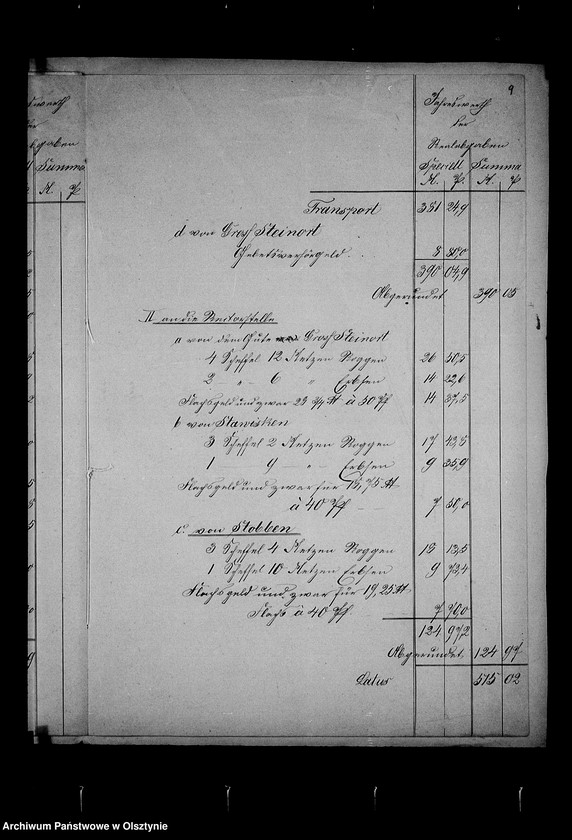 9
Jahreswerth
der
Realabgaben
Speciell Summa
M. Pf. M. Pf
Summa
M. Pf
Transport 381 24,9
d von Groß Steinort
Gebetsverhörgeld. 8 80,0
390 04,9
Abgerundet 390 05
II an die Rectorstelle
a von dem Gute Groß Steinort
4 Scheffel 12 Metzen Roggen 26 50,5
2 " - 6 " Erbsen 14 22,6
Flachsgeld und zwar 28 3/4 tt à 50 Pf 14 37,5
b von Stawisken
3 Scheffel 2 Metzen Roggen 17 43,5
1 - 9 - " - Erbsen 9 35,9
Flachsgeld und zwar für 18,75 tt
à 40 Pf 7 50,0
c. von Stobben
3 Scheffel 4 Metzen Roggen 18 13,5
1 Scheffel 10 Metzen Erbsen 9 73,4
Flachsgeld und zwar für 19,25 tt
Flachs à 40 Pf 7 70,0
124 97,2
Abgerundet 124 97
Latus 515 02
Archiwum Państwowe w Olsztynie